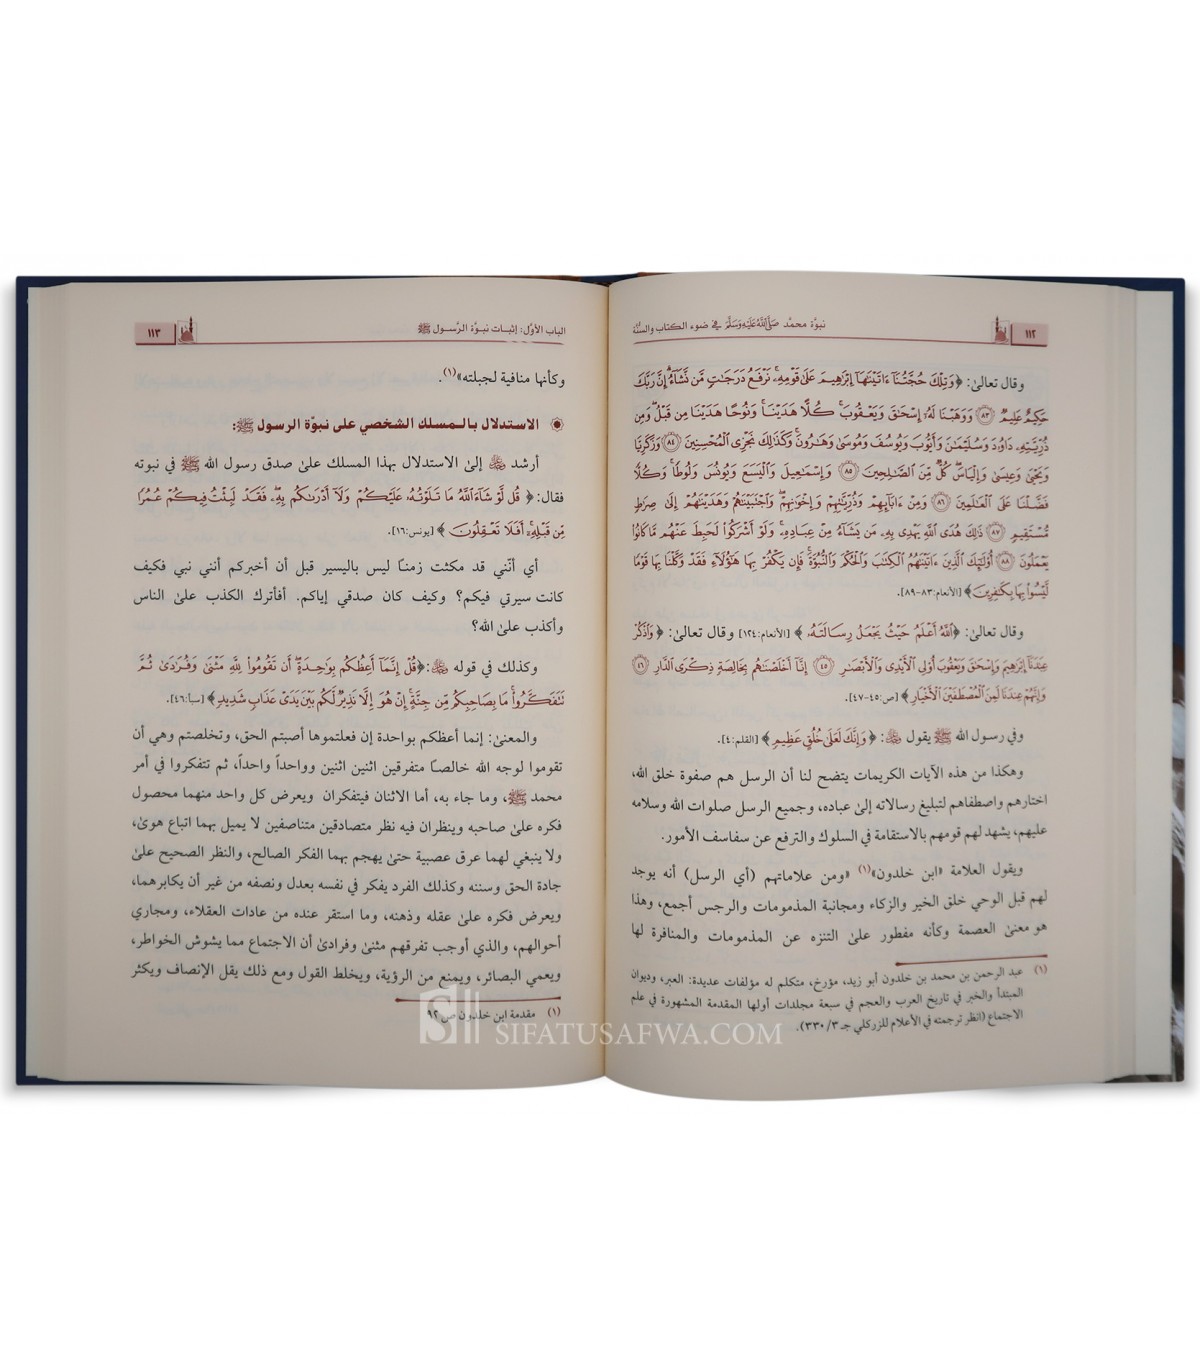 ١١٢
نبوّة محمّد صَلَّى اللَّهُ عَلَيْهِ وَسَلَّمَ في ضوء الكتاب والسنُّة
وقال تعالىٰ: ﴿وَتِلْكَ حُجَّتُنَآ ءَاتَيْنَٰهَآ إِبْرَٰهِيمَ عَلَىٰ قَوْمِهِۦ ۚ نَرْفَعُ دَرَجَٰتٍ مَّن نَّشَآءُ ۗ إِنَّ رَبَّكَ
حَكِيمٌ عَلِيمٌ ٨٣ وَوَهَبْنَا لَهُۥٓ إِسْحَٰقَ وَيَعْقُوبَ ۚ كُلًّا هَدَيْنَا ۚ وَنُوحًا هَدَيْنَا مِن قَبْلُ ۖ وَمِن
ذُرِّيَّتِهِۦ دَاوُۥدَ وَسُلَيْمَٰنَ وَأَيُّوبَ وَيُوسُفَ وَمُوسَىٰ وَهَٰرُونَ ۚ وَكَذَٰلِكَ نَجْزِى ٱلْمُحْسِنِينَ ٨٤ وَزَكَرِيَّا
وَيَحْيَىٰ وَعِيسَىٰ وَإِلْيَاسَ ۖ كُلٌّ مِّنَ ٱلصَّٰلِحِينَ ٨٥ وَإِسْمَٰعِيلَ وَٱلْيَسَعَ وَيُونُسَ وَلُوطًا ۚ وَكُلًّا
فَضَّلْنَا عَلَى ٱلْعَٰلَمِينَ ٨٦ وَمِنْ ءَابَآئِهِمْ وَذُرِّيَّٰتِهِمْ وَإِخْوَٰنِهِمْ ۖ وَٱجْتَبَيْنَٰهُمْ وَهَدَيْنَٰهُمْ إِلَىٰ صِرَٰطٍ
مُّسْتَقِيمٍ ٨٧ ذَٰلِكَ هُدَى ٱللَّهِ يَهْدِى بِهِۦ مَن يَشَآءُ مِنْ عِبَادِهِۦ ۚ وَلَوْ أَشْرَكُوا۟ لَحَبِطَ عَنْهُم مَّا كَانُوا۟
يَعْمَلُونَ ٨٨ أُو۟لَٰٓئِكَ ٱلَّذِينَ ءَاتَيْنَٰهُمُ ٱلْكِتَٰبَ وَٱلْحُكْمَ وَٱلنُّبُوَّةَ ۚ فَإِن يَكْفُرْ بِهَا هَٰٓؤُلَآءِ فَقَدْ وَكَّلْنَا بِهَا قَوْمًا
لَّيْسُوا۟ بِهَا بِكَٰفِرِينَ﴾ [الأنعام:٨٣-٨٩].
وقال تعالىٰ: ﴿ٱللَّهُ أَعْلَمُ حَيْثُ يَجْعَلُ رِسَالَتَهُۥ﴾ [الأنعام:١٢٤] وقال تعالىٰ: ﴿وَٱذْكُرْ
عِبَٰدَنَآ إِبْرَٰهِيمَ وَإِسْحَٰقَ وَيَعْقُوبَ أُو۟لِى ٱلْأَيْدِى وَٱلْأَبْصَٰرِ ٤٥ إِنَّآ أَخْلَصْنَٰهُم بِخَالِصَةٍ ذِكْرَى ٱلدَّارِ ٤٦
وَإِنَّهُمْ عِندَنَا لَمِنَ ٱلْمُصْطَفَيْنَ ٱلْأَخْيَارِ﴾ [ص:٤٥-٤٧].
وفي رسول الله ﷺ يقول ﷻ: ﴿وَإِنَّكَ لَعَلَىٰ خُلُقٍ عَظِيمٍ﴾ [القلم:٤].
وهكذا من هذه الآيات الكريمات يتضح لنا أن الرسل هم صفوة خلق الله،
اختارهم واصطفاهم لتبليغ رسالاته إلىٰ عباده، وجميع الرسل صلوات الله وسلامه
عليهم، يشهد لهم قومهم بالاستقامة في السلوك والترفع عن سفاسف الأمور.
ويقول العلامة «ابن خلدون»(١) «ومن علاماتهم (أي الرسل) أنه يوجد
لهم قبل الوحي خلق الخير والزكاء ومجانبة المذمومات والرجس أجمع، وهذا
هو معنىٰ العصمة وكأنه مفطور علىٰ التنزه عن المذمومات والمنافرة لها
(١) عبد الرحمن بن محمد بن خلدون أبو زيد، مؤرخ، متكلم له مؤلفات عديدة: العبر، وديوان
المبتدأ والخبر في تاريخ العرب والعجم في سبعة مجلدات أولها المقدمة المشهورة في علم
الاجتماع (انظر ترجمته في الأعلام للزركلي جـ ٣/ ٣٣٠).
الباب الأوّل: إثبات نبوّة الرّسول ﷺ
١١٣
وكأنها منافية لجبلته»(١).
الاستدلال بالمسلك الشخصي على نبوّة الرسول ﷺ:
أرشد ﷻ إلىٰ الاستدلال بهذا المسلك علىٰ صدق رسول الله ﷺ في نبوته
فقال: ﴿قُل لَّوْ شَآءَ ٱللَّهُ مَا تَلَوْتُهُۥ عَلَيْكُمْ وَلَآ أَدْرَىٰكُم بِهِۦ ۖ فَقَدْ لَبِثْتُ فِيكُمْ عُمُرًا
مِّن قَبْلِهِۦٓ ۚ أَفَلَا تَعْقِلُونَ﴾ [يونس:١٦].
أي أنّني قد مكثت زمنًا ليس باليسير قبل أن أخبركم أنني نبي فكيف
كانت سيرتي فيكم؟ وكيف كان صدقي إياكم. أفأترك الكذب علىٰ الناس
وأكذب علىٰ الله؟
وكذلك في قوله ﷻ: ﴿قُلْ إِنَّمَآ أَعِظُكُم بِوَٰحِدَةٍ ۖ أَن تَقُومُوا۟ لِلَّهِ مَثْنَىٰ وَفُرَٰدَىٰ ثُمَّ
تَتَفَكَّرُوا۟ ۚ مَا بِصَاحِبِكُم مِّن جِنَّةٍ ۚ إِنْ هُوَ إِلَّا نَذِيرٌ لَّكُم بَيْنَ يَدَىْ عَذَابٍ شَدِيدٍ﴾ [سبأ:٤٦].
والمعنىٰ: إنما أعظكم بواحدة إن فعلتموها أصبتم الحق، وتخلصتم وهي أن
تقوموا لوجه الله خالصًا متفرقين اثنين اثنين وواحداً واحداً، ثم تتفكروا في أمر
محمد ﷺ، وما جاء به، أما الاثنان فيتفكران ويعرض كل واحد منهما محصول
فكره علىٰ صاحبه وينظران فيه نظر متصادقين متناصفين لا يميل بهما اتباع هوىٰ،
ولا ينبغي لهما عرق عصبية حتىٰ يهجم بهما الفكر الصالح، والنظر الصحيح علىٰ
جادة الحق وسننه وكذلك الفرد يفكر في نفسه بعدل ونصفه من غير أن يكابرهما،
ويعرض فكره علىٰ عقله وذهنه، وما استقر عنده من عادات العقلاء، ومجاري
أحوالهم، والذي أوجب تفرقهم مثنىٰ وفرادىٰ أن الاجتماع مما يشوش الخواطر،
ويعمي البصائر، ويمنع من الرؤية، ويخلط القول ومع ذلك يقل الإنصاف ويكثر
(١) مقدمة ابن خلدون ص ٩٢
SIFATUSAFWA.COM